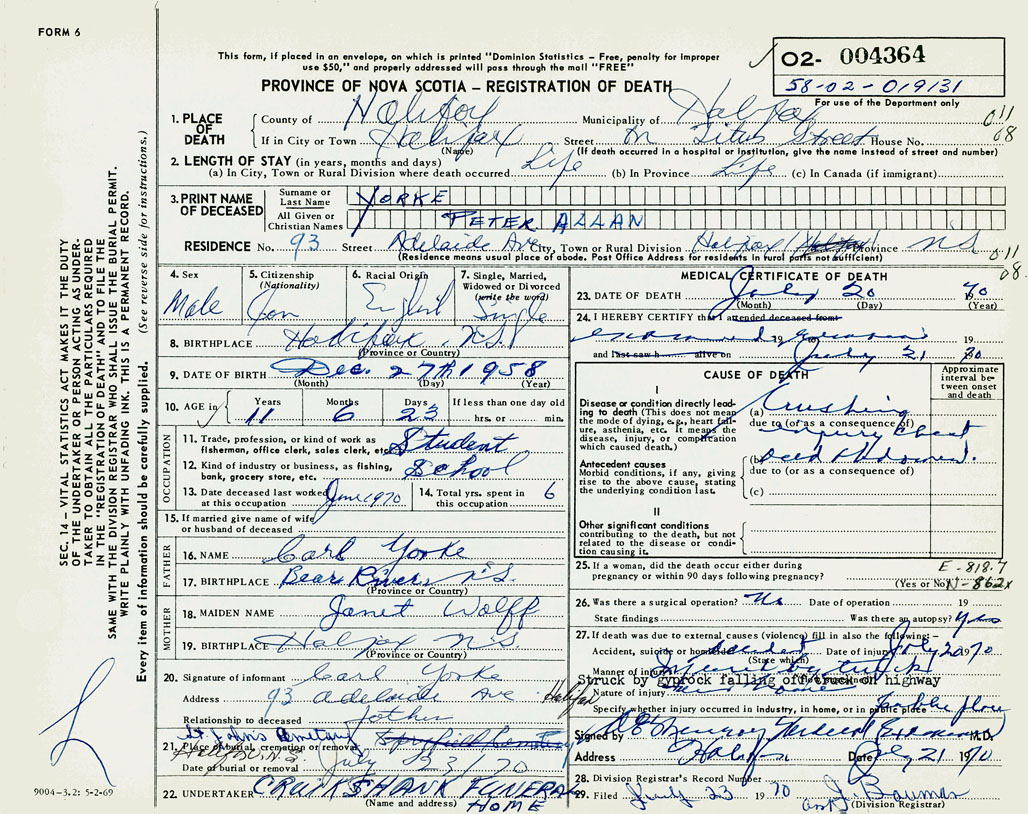 FORM 6
This form, if placed in an envelope, on which is printed "Dominion Statistics – Free, penalty for improper
use $50," and properly addressed will pass through the mail "FREE"
02- 004364
58-02-019131
For use of the Department only
PROVINCE OF NOVA SCOTIA – REGISTRATION OF DEATH
1. PLACE OF DEATH
County of Halifax Municipality of Halifax
011
08
If in City or Town Halifax Street on Titus Street House No.
(Name) (If death occurred in a hospital or institution, give the name instead of street and number)
2. LENGTH OF STAY (in years, months and days)
(a) In City, Town or Rural Division where death occurred Life (b) In Province Life (c) In Canada (if immigrant)
3. PRINT NAME OF DECEASED
Surname or Last Name YORKE
All Given or Christian Names PETER ALLAN
RESIDENCE No. 93 Street Adelaide Ave City, Town or Rural Division Halifax (Halifax) Province NS
(Residence means usual place of abode. Post Office Address for residents in rural parts not sufficient)
011
08.
4. Sex
Male
5. Citizenship
(Nationality)
Can
6. Racial Origin
English
7. Single, Married,
Widowed or Divorced
(write the word)
Single
8. BIRTHPLACE Halifax, N.S.
(Province or Country)
9. DATE OF BIRTH Dec. 27th 1958
(Month) (Day) (Year)
10. AGE in
Years 11
Months 6
Days 23
If less than one day old
hrs. or min.
OCCUPATION
11. Trade, profession, or kind of work as
fisherman, office clerk, sales clerk, etc. Student
12. Kind of industry or business, as fishing,
bank, grocery store, etc. School
13. Date deceased last worked
at this occupation June 1970
14. Total yrs. spent in
this occupation 6
15. If married give name of wife
or husband of deceased
FATHER
16. NAME Carl Yorke
17. BIRTHPLACE Bear River, N.S.
(Province or Country)
MOTHER
18. MAIDEN NAME Janet Wolff
19. BIRTHPLACE Halifax N.S
(Province or Country)
20. Signature of informant Carl Yorke
Address 93 Adelaide Ave Halifax
Relationship to deceased father
St. John's Cemetary
21. Place of burial, cremation or removal
Halifax, N.S.
Date of burial or removal July 23/70
22. UNDERTAKER CRUIKSHANK FUNERAL
(Name and address) HOME
MEDICAL CERTIFICATE OF DEATH
23. DATE OF DEATH July 20 70
(Month) (Day) (Year)
24. I HEREBY CERTIFY that I attended deceased from
19 19
and last saw h alive on July 21 70
CAUSE OF DEATH
Approximate
interval be-
tween onset
and death
I
Disease or condition directly lead-
ing to death (This does not mean
the mode of dying, e.g., heart fail-
ure, asthenia, etc. It means the
disease, injury, or complication
which caused death.)
(a) Crushing
due to (or as a consequence of)
injury chest
Antecedent causes
Morbid conditions, if any, giving
rise to the above cause, stating
the underlying condition last.
(b) and Abdomen.
due to (or as a consequence of)
(c)
II
Other significant conditions
contributing to the death, but not
related to the disease or condi-
tion causing it.
25. If a woman, did the death occur either during
pregnancy or within 90 days following pregnancy?
(Yes or No)
E-818.7
N-862x
26. Was there a surgical operation? No Date of operation 19
State findings Was there an autopsy? Yes
27. If death was due to external causes (violence) fill in also the following:–
Accident, suicide or homicide accident Date of injury July 20 1970
(State which)
Manner of injury
Struck by gyprock falling off truck on highway
Nature of injury
Specify whether injury occurred in industry, in home, or in public place Public place
Signed by Medical Examiner M.D.
Address Halifax Date July 21 1970
28. Division Registrar's Record Number
29. Filed July 23 1970 J. Bauman
(Division Registrar)
SEC. 14 – VITAL STATISTICS ACT MAKES IT THE DUTY
OF THE UNDERTAKER OR PERSON ACTING AS UNDER-
TAKER TO OBTAIN ALL THE PARTICULARS REQUIRED
IN THE "REGISTRATION OF DEATH" AND TO FILE THE
SAME WITH THE DIVISION REGISTRAR WHO SHALL ISSUE THE BURIAL PERMIT.
WRITE PLAINLY WITH UNFADING INK. THIS IS A PERMANENT RECORD.
Every item of information should be carefully supplied. (See reverse side for instructions.)
9004-3.2: 5-2-69